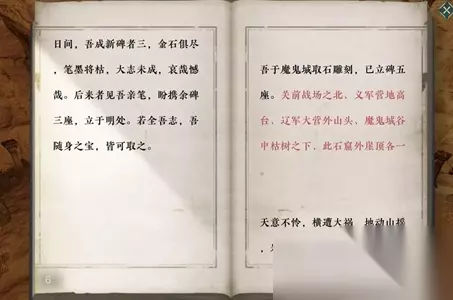 日间，吾成新碑者三，金石俱尽
，笔墨将枯，大志未成，哀哉憾
哉。后来者见吾亲笔，盼携余碑
三座，立于明处。若全吾志，吾
随身之宝，皆可取之。
6
吾于魔鬼城取石雕刻，已立碑五
座。关前战场之北、义军营地高
台、辽军大营外山头、魔鬼城谷
中枯树之下、此石窟外崖顶各一
天意不怜，横遭大祸，地动山摇